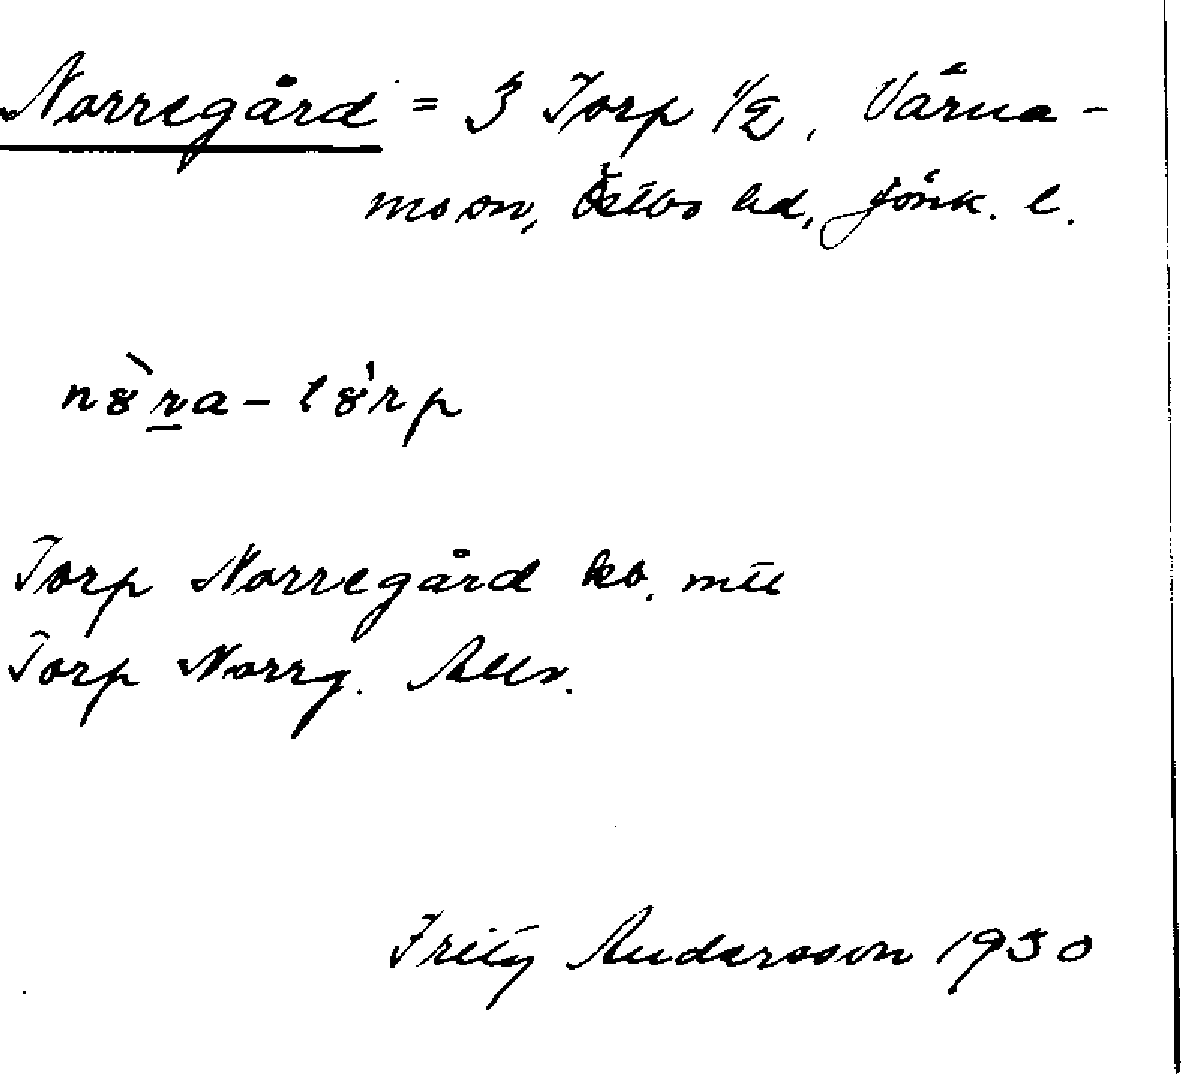 Norregård = 3 Torp 1/2, Värna-
mo sn, Östbo hd, Jönk. l.
nȣ̀ra - tȣ́rp
Torp Norregård
Torp Norrg.
Andersson 1930